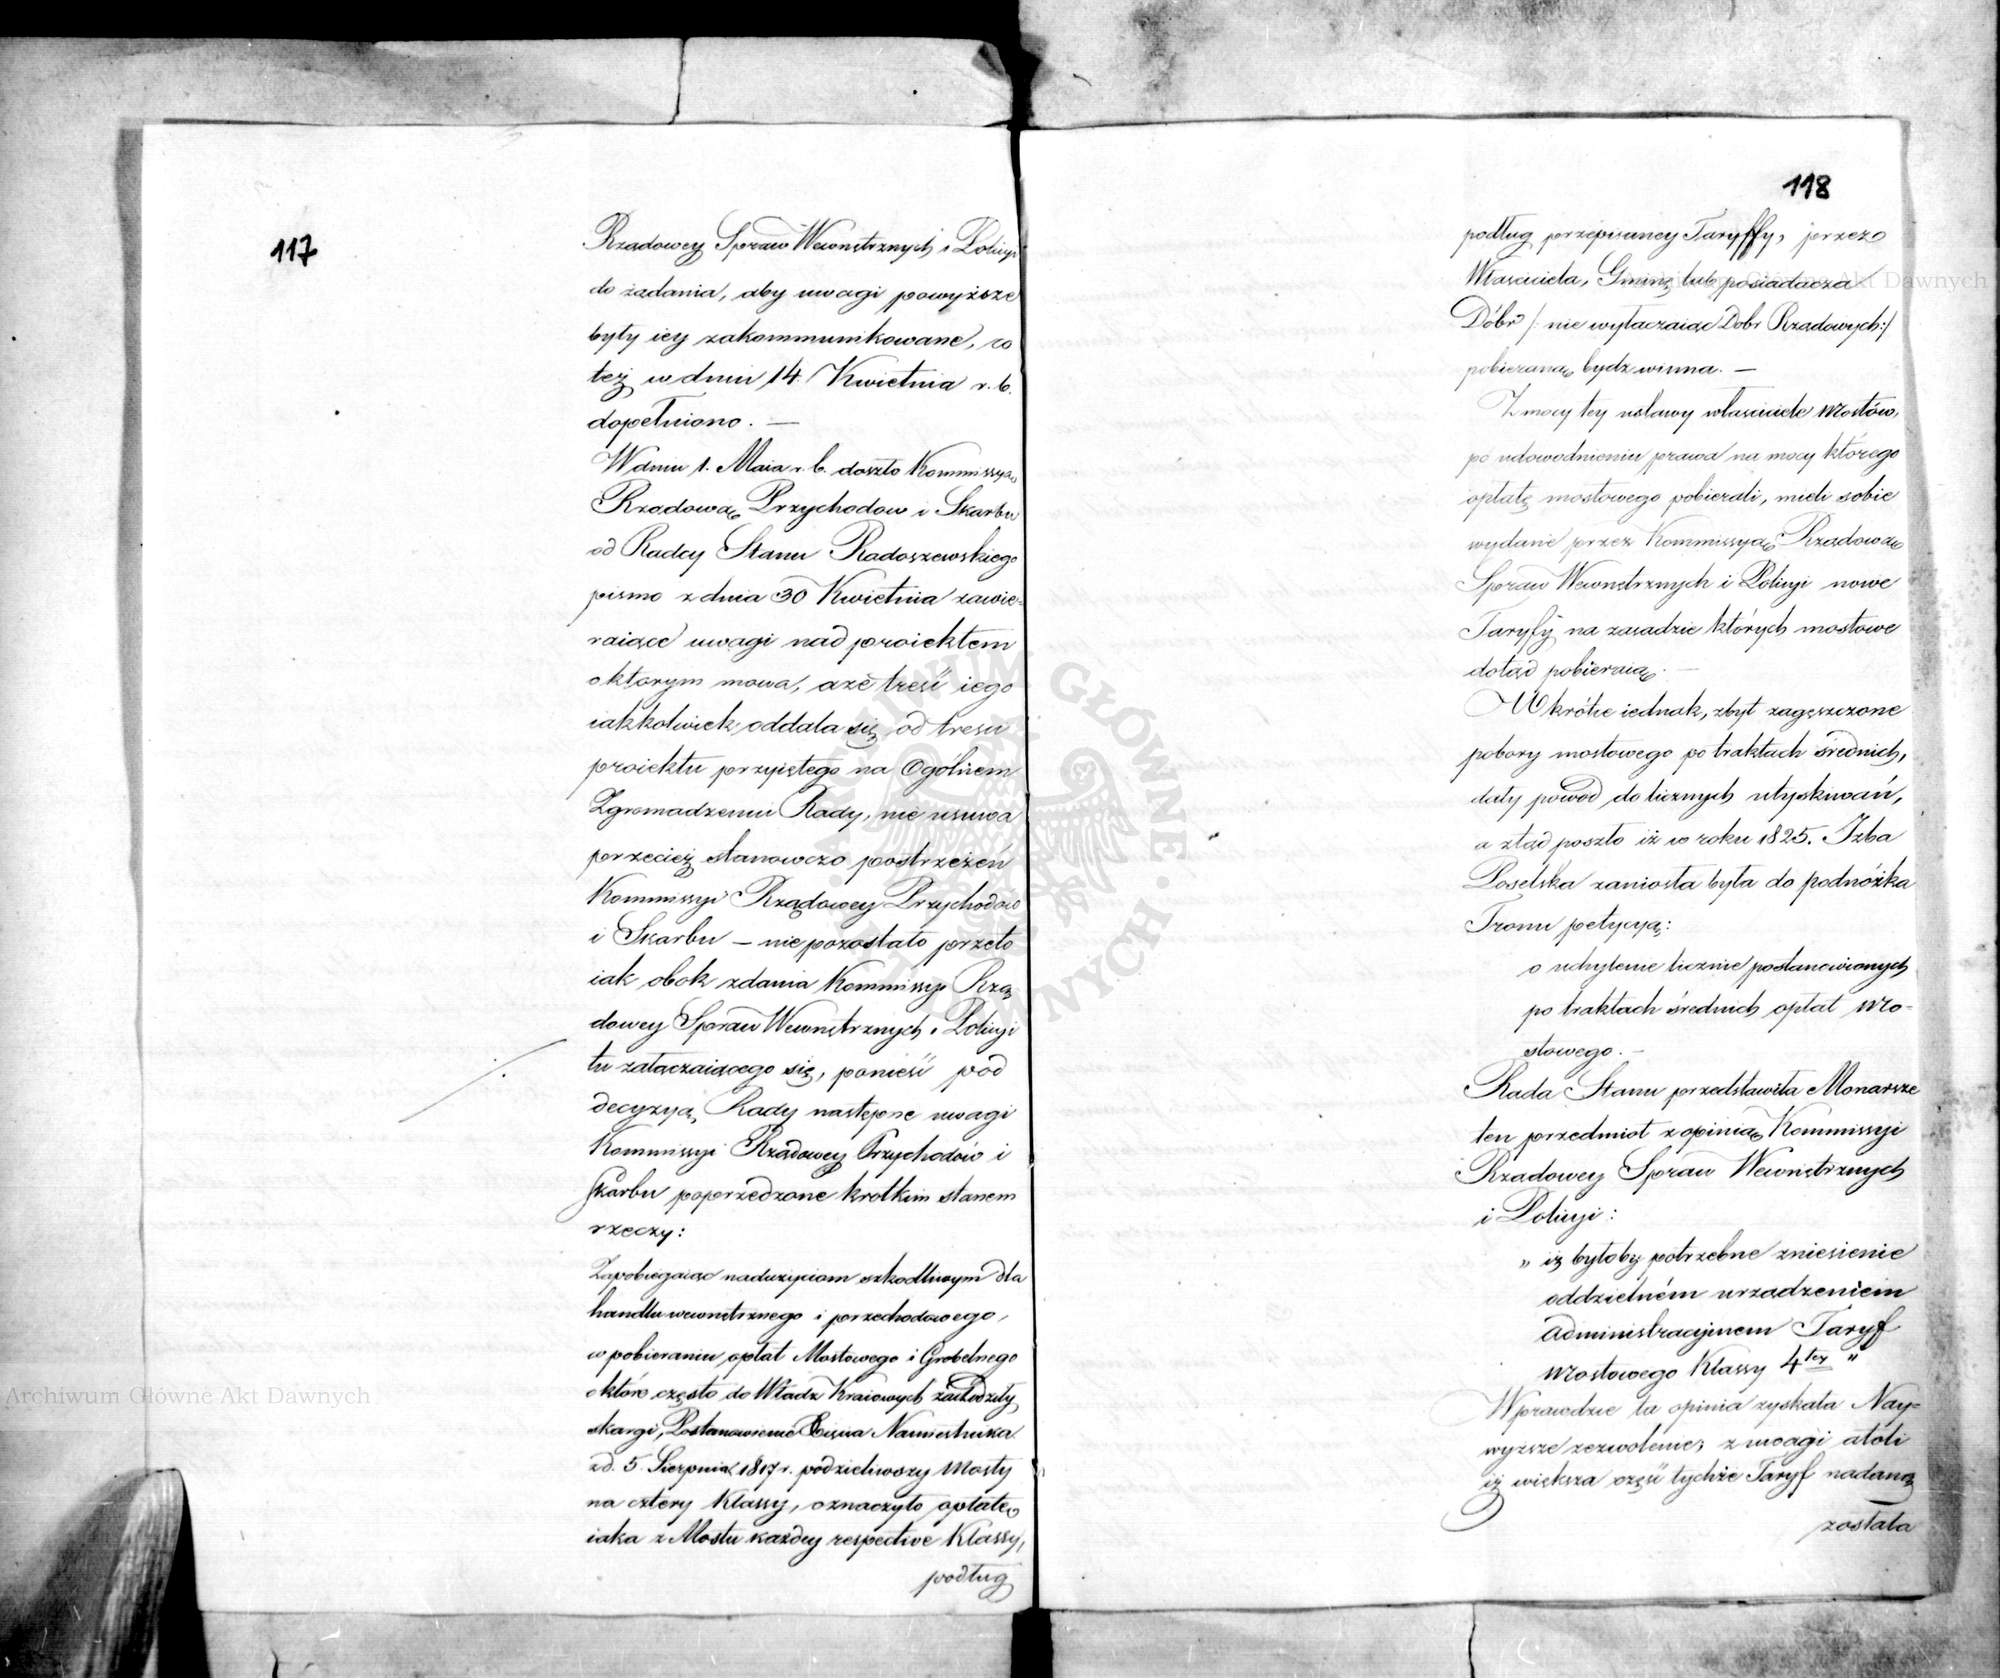 117
Rządowey Spraw Wewnętrznych i Policyi
do żądania, aby uwagi powyższe
były iey zakommunikowane, co
też w dniu 14 Kwietnia r. b.
dopełniono. —
W dniu 1. Maia r. b. doszło Kommissyą
Rządową Przychodow i Skarbu
od Radcy Stanu Radoszewskiego
pismo z dnia 30 Kwietnia zawie-
raiące uwagi nad proiektem
o którym mowa, a że treść iego
iakkolwiek oddala się od treści
proiektu przyiętego na Ogólném
Zgromadzeniu Rady, nie usuwa
przecież stanowczo postrzeżeń
Kommissyi Rządowey Przychodów
i Skarbu — nie pozostało przeto
iak obok zdania Kommissyi Rzą-
dowey Spraw Wewnętrznych i Policyi
tu załączaiącego się, ponieść pod
decyzyą Rady następne uwagi
Kommissyi Rządowey Przychodów i
Skarbu poprzedzone krótkim stanem
rzeczy:
Zapobiegaiąc nadużyciom szkodliwym dla
handlu wewnętrznego i przechodowego,
w pobieraniu opłat Mostowego i Grobelnego
o które często do Władz Kraiowych zachodziły
skargi, Postanowienie Xięcia Namiestnika
z d. 5. Sierpnia 1817 r. podzieliwszy Mosty
na cztery Klassy, oznaczyło opłatę
iaka z Mostu każdey respective Klassy,
podług
118
podług przepisaney Taryffy, przez
Właściciela, Gminę lub posiadacza
Dóbr /: nie wyłączaiąc Dóbr Rządowych:/
pobieraną bydź winna. —
Z mocy tey ustawy właściciele mostów,
po udowodnieniu prawa na mocy którego
opłatę mostowego pobierali, mieli sobie
wydane przez Kommissyą Rządową
Spraw Wewnętrznych i Policyi nowe
Taryfy na zasadzie których mostowe
dotąd pobieraią. —
Wkrótce iednak, zbyt zagęszczone
pobory mostowego po traktach średnich,
dały powód do licznych utyskiwań,
a ztąd poszło iż w roku 1825. Izba
Poselska zaniosła była do podnóżka
Tronu petycyą:
o uchylenie licznie postanowionych
po traktach średnich opłat mo-
stowego. —
Rada Stanu przedstawiła Monarsze
ten przedmiot z opinią Kommissyi
Rządowey Spraw Wewnętrznych
i Policyi:
„ iż byłoby potrzebne zniesienie
oddzielném urządzeniem
administracyjnem Taryf
mostowego Klassy 4tey "
Wprawdzie ta opinia zyskała Nay-
wyższe zezwolenie, z uwagi atoli
iż większa część tychże Taryf nadaną
została
Archiwum Główne Akt Dawnych
Archiwum Główne Akt Dawnych
ARCHIWUM GŁÓWNE AKT DAWNYCH